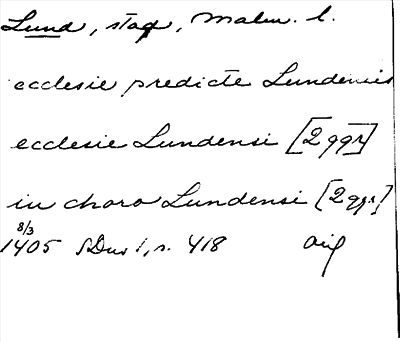 Lund, stad, Malm. l.
ecclesie predicte Lundensis
ecclesie Lundensi [2 ggr]
in choro Lundensi [2 ggr]
8/3
1405 SDns 1, s. 418 orig